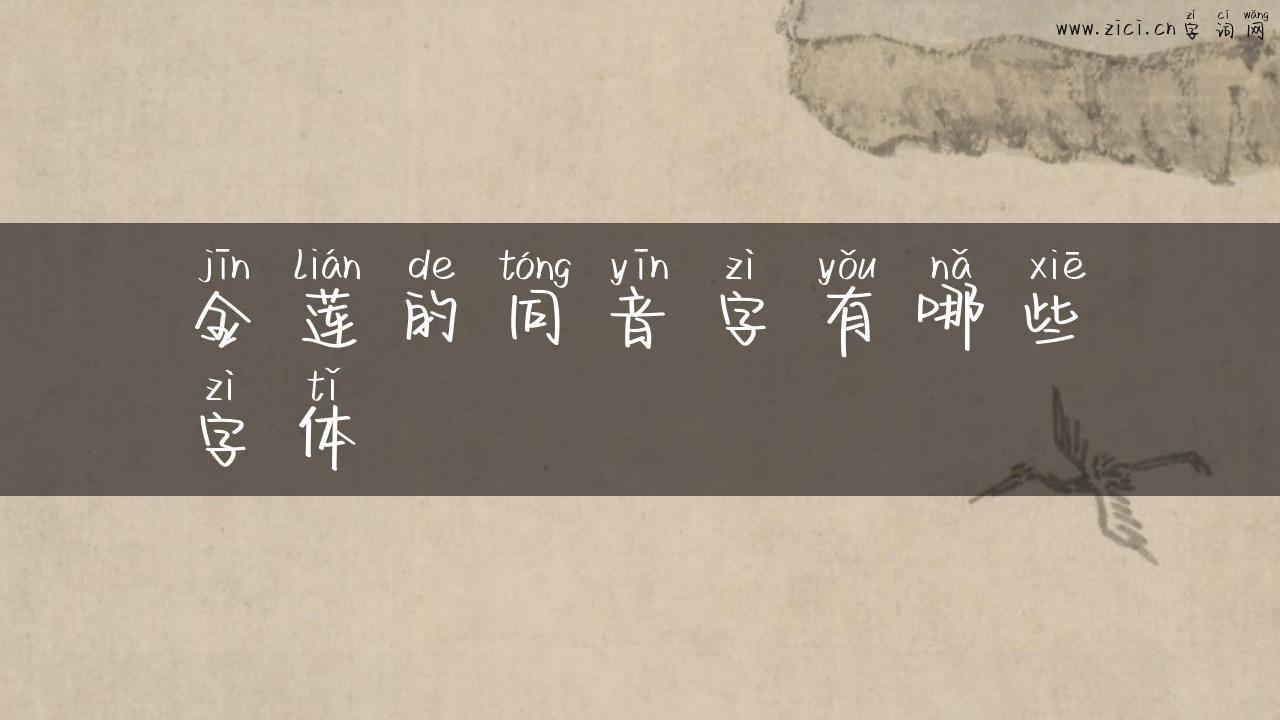 zì cí wǎng
www.zici.cn 字词网
jīn lián de tóng yīn zì yǒu nǎ xiē
金莲的同音字有哪些
zì tǐ
字体